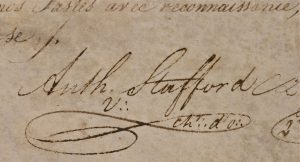 nos Fastes avec reconnaissance,
se ./.
Anth. Stafford
V∴ ch∴ d'o∴